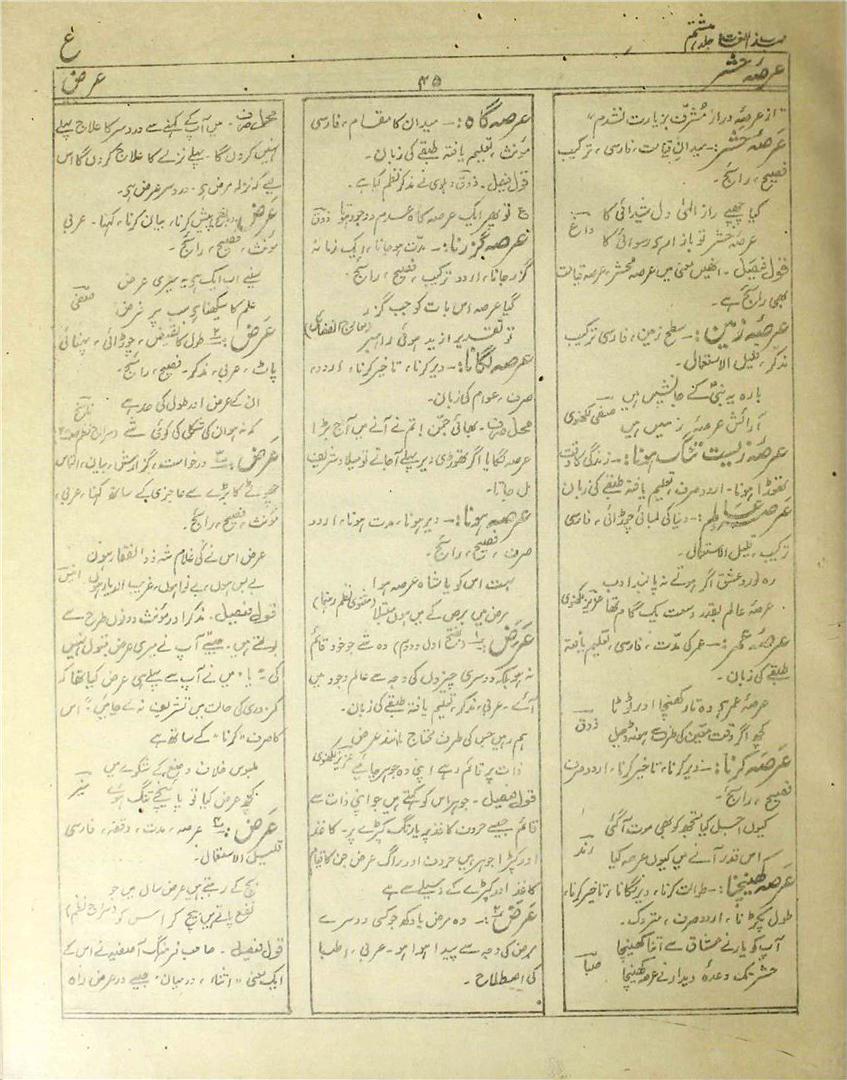 مہذب اللغات جلد ہشتم
ع
عرصۂ حشر
۴۵
عرض
"از عرصۂ دراز مشرف بزیارت نشدم"
عرصۂ حشر:۔ میدان قیامت، فارسی، ترکیب
فصیح، رائج۔
کیا چھپے راز الٰہی دل شیدائی کا
داغ
عرصۂ حشر تو بازار ہے رسوائی کا
قول فیصل۔ انھیں معنی میں عرصۂ محشر، عرصۂ قیامت
بھی رائج ہے۔
عرصۂ زمین:۔ سطح زمین، فارسی ترکیب
مذکر، قلیل الاستعمال۔
بارہ یہ نبیؐ کے جانشیں ہیں
صفی لکھنوی
آرائش عرصۂ زمیں ہیں
عرصۂ زیست تنگ ہونا:۔ زندگی کا وقت
تھوڑا ہونا۔ اردو صرف، تعلیم یافتہ طبقے کی زبان
عرصۂ عالم:۔ دنیا کی لمبائی چوڑائی، فارسی
ترکیب، قلیل الاستعمال۔
رہ نورد عشق اگر ہوتے نہ پابند ادب
عزیز لکھنوی
عرصۂ عالم بقدر وسعت یک گام تھا
عرصۂ عمر:۔ عمر کی مدت، فارسی، تعلیم یافتہ
طبقے کی زبان۔
عرصۂ عمر ہے وہ تار کھنچا اور ٹوٹا
ذوق
کچھ اگر وقت معین کی طرف سے ہو نہ ڈھیل
عرصہ کرنا:۔ دیر کرنا، تاخیر کرنا، اردو صرف
فصیح، رائج۔
کیوں اجل کیا تجھ کو بھی موت آ گئی
رند
اس قدر آنے میں کیوں عرصہ کیا
عرصہ کھینچنا:۔ طوالت کرنا، دیر لگانا، تاخیر کرنا،
طول پکڑنا، اردو صرف، متروک۔
آپ کو یار نے عشاق سے اتنا کھینچا
صبا
حشر تک وعدۂ دیدار نے عرصہ کھینچا
عرصہ گاہ:۔ میدان کا مقام، فارسی
مؤنث، تعلیم یافتہ طبقے کی زبان۔
قول فیصل۔ ذوق دہلوی نے مذکر نظم کیا ہے۔
ع تو پھر ایک عرصہ گاہ عدم و وجود تھا ذوق
عرصہ گزرنا:۔ مدت ہو جانا، ایک زمانہ
گزر جانا، اردو ترکیب، فصیح، رائج۔
گیا عرصہ اس بات کو جب گزر
تو تقدیر از ید ہوئی راہبر
عرصہ لگانا:۔ دیر کرنا، تاخیر کرنا، اردو
صرف، عوام کی زبان۔
محل صرف۔ بھائی جمن! تم نے آنے میں آج بڑا
عرصہ لگایا اگر تھوڑی دیر پہلے آ جاتے تو میلاد شریف
مل جاتا۔
عرصہ ہونا:۔ دیر ہونا، مدت ہونا، اردو
صرف، فصیح، رائج۔
بہت اس کو یا شاہ عرصہ ہوا
مرض میں برص کے میں ہوں مبتلا
عرض ۱ (بفتح اول و دوم) وہ شے جو خود قائم
نہ ہو بلکہ دوسری چیزوں کی وجہ سے عالم وجود میں
آئے۔ عربی، مذکر، تعلیم یافتہ طبقے کی زبان۔
ہم رہیں جس کی طرف محتاج مانند عرض
عزیز لکھنوی
ذات پر قائم رہے اپنی وہ جوہر چاہیے
قول فیصل۔ جوہر اس کو کہتے ہیں جو اپنی ذات سے
قائم جیسے حروف کاغذ پر یا رنگ کپڑے پر۔ کاغذ
اور کپڑا جوہر ہیں حروف اور رنگ عرض جن کا قیام
کاغذ اور کپڑے کے وسیلے سے ہے
عرض ۲:۔ وہ مرض یا دکھ جو کسی دوسرے
مرض کی وجہ سے پیدا ہوا ہو۔ عربی، اطبا
کی اصطلاح۔
محل صرف۔ میں آپ کے کہنے سے درد سر کا علاج پہلے
نہیں کروں گا۔ پہلے نزلے کا علاج کروں گا اس
لیے کہ نزلہ مرض ہے، درد سر عرض ہے۔
عرض پیش کرنا، بیان کرنا، کہنا۔ عربی
مؤنث، فصیح، رائج۔
سنیے اب ایک ہے یہ میری عرض
صفی
علم کا سیکھنا ہے سب پر فرض
عرض ۲ طول کا نقیض، چوڑائی، پہنائی
پاٹ، عربی، مذکر، فصیح، رائج۔
ان کے عرض اور طول کی حد ہے
کہ نہ ہو ان کی شکل کی کوئی شے
عرض ۳:۔ درخواست، گزارش، بیان، التماس
چھوٹے کا بڑے سے عاجزی کے ساتھ کہنا، عربی،
مؤنث، فصیح، رائج۔
عرض اس نے کی غلام شہ ذوالفقار ہوں
انیس
بے بس ہوں، بے نوا ہوں، غریب الدیار ہوں
قول فیصل۔ مذکر اور مؤنث دونوں طرح سے
بولتے ہیں۔ جیسے آپ نے میری عرض قبول نہیں
کی" یا "میں نے آپ سے پہلے ہی عرض کیا تھا کہ
کمزوری کی حالت میں تشریف نہ لے جائیں" اس
کا صرف "کرنا" کے ساتھ ہے
ملبوس خلاف وضع کے شکوے میں
کچھ عرض کیا تو پائنچے تنگ ہوئے
عرض ۴:۔ عرصہ، مدت، وقفہ، فارسی
قلیل الاستعمال۔
بیج کے رہتے ہیں عرض سال میں جو
نفع پاتے ہیں بیچ کر اس کو (سراج نظم)
قول فیصل۔ صاحب فرہنگ آصفیہ نے اس کے
ایک معنی "اثناء، درمیان" جیسے در عرض راہ